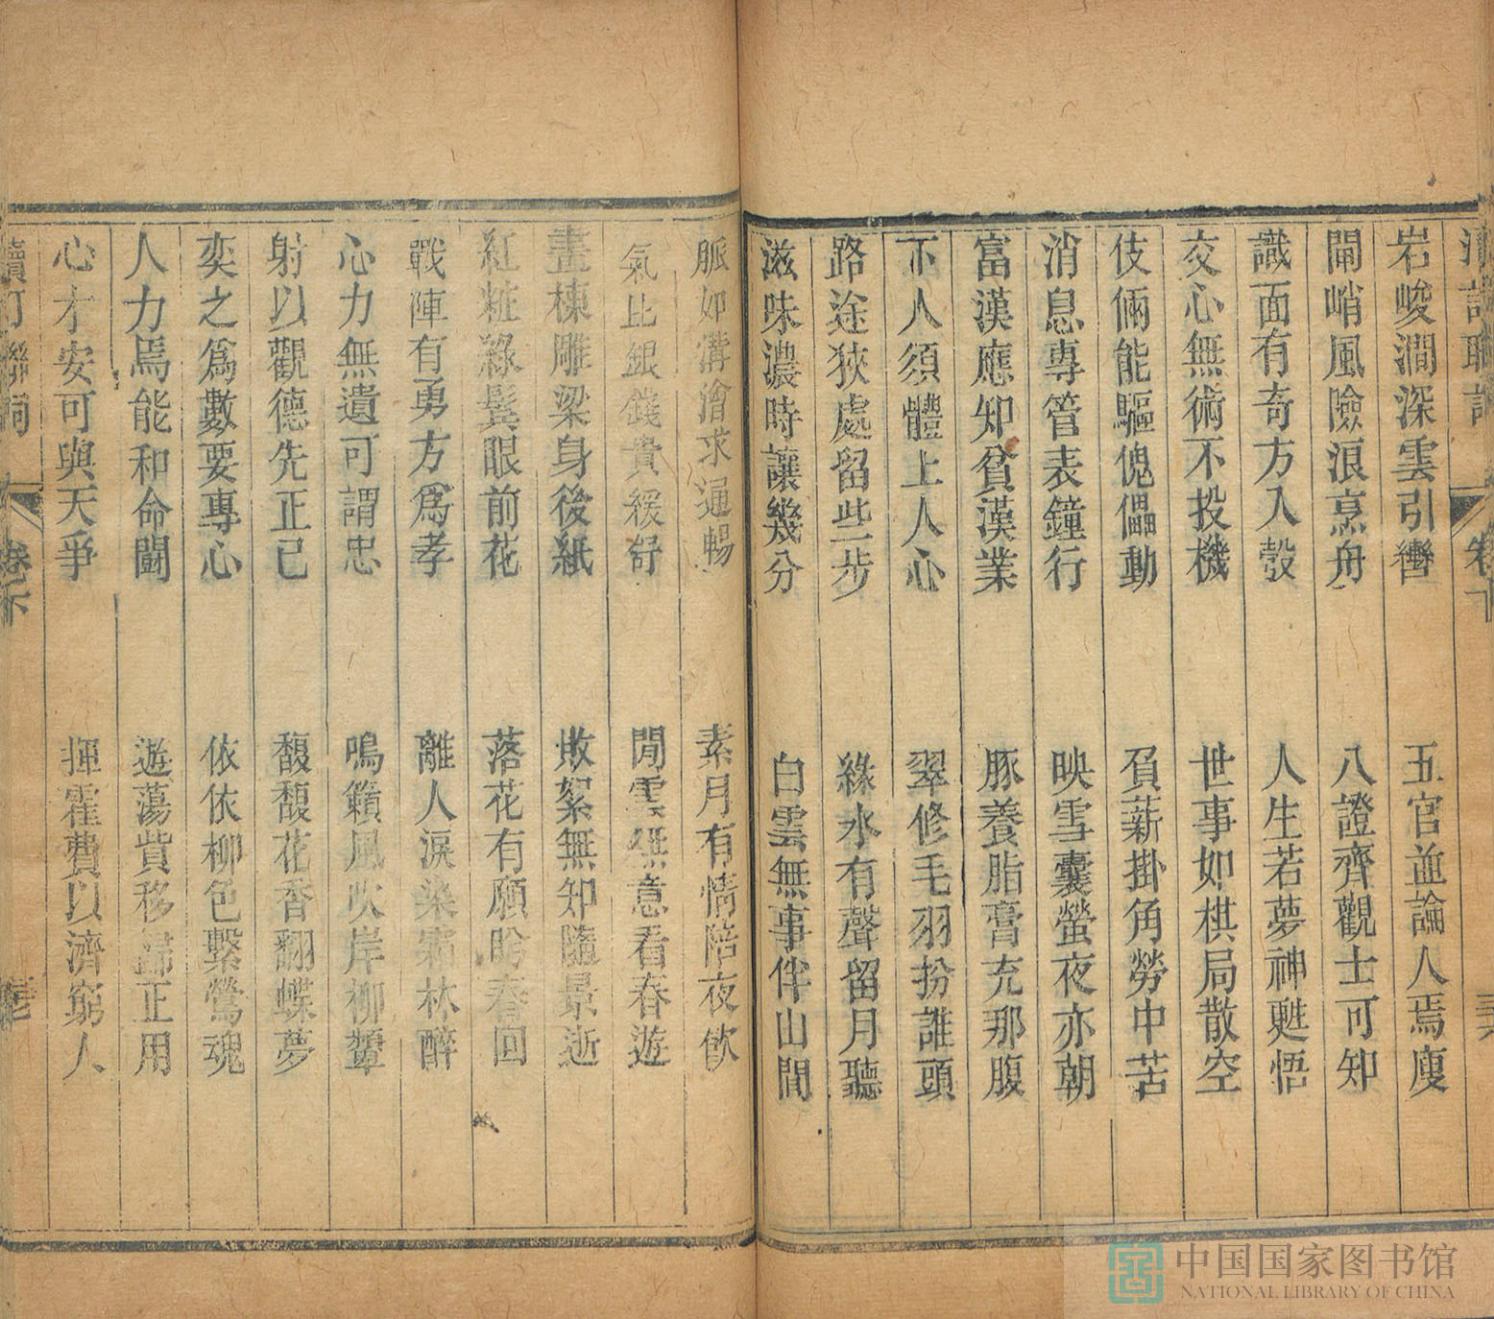 岩峻澗深雲引轡 五官並論人焉廋
閘峭風險浪烹舟 八證齊觀士可知
識面有奇方入彀 人生若夢神甦悟
交心無術不投機 世事如棋局散空
伎倆能驅傀儡動 負薪掛角勞中苦
消息專管表鐘行 映雪囊螢夜亦朝
富漢應知貧漢業 豚養脂膏充那腹
下人須體上人心 翠修毛羽扮誰頭
路途狹處留些步 綠水有聲留月聽
滋味濃時讓幾分 白雲無事伴山間
脈如溝澮求通暢 素月有情陪夜飲
氣比銀錢貴緩舒 閒雲無意看春遊
畫棟雕梁身後紙 敗絮無知隨景逝
紅粧綠鬂眼前花 落花有願盼春回
戰陣有勇方爲孝 離人淚染霜林醉
心力無遺可謂忠 鳴籟風吹岸柳顰
射以觀德先正己 馥馥花香翻蝶夢
奕之爲數要專心 依依柳色繫鶯魂
人力焉能和命鬪 遊蕩貲移歸正用
心才安可與天爭 揮霍費以濟窮人
卷下
中国国家图书馆
NATIONAL LIBRARY OF CHINA